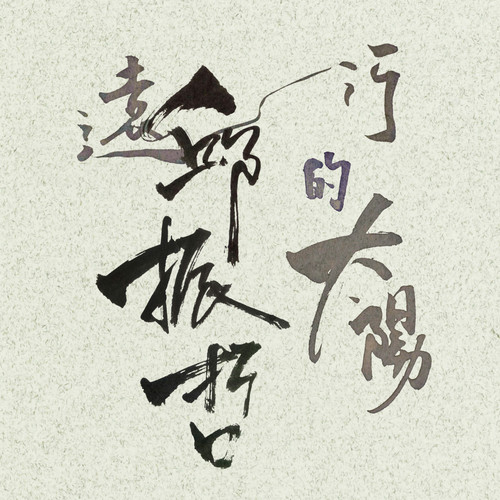 遠行的太陽
邱振哲